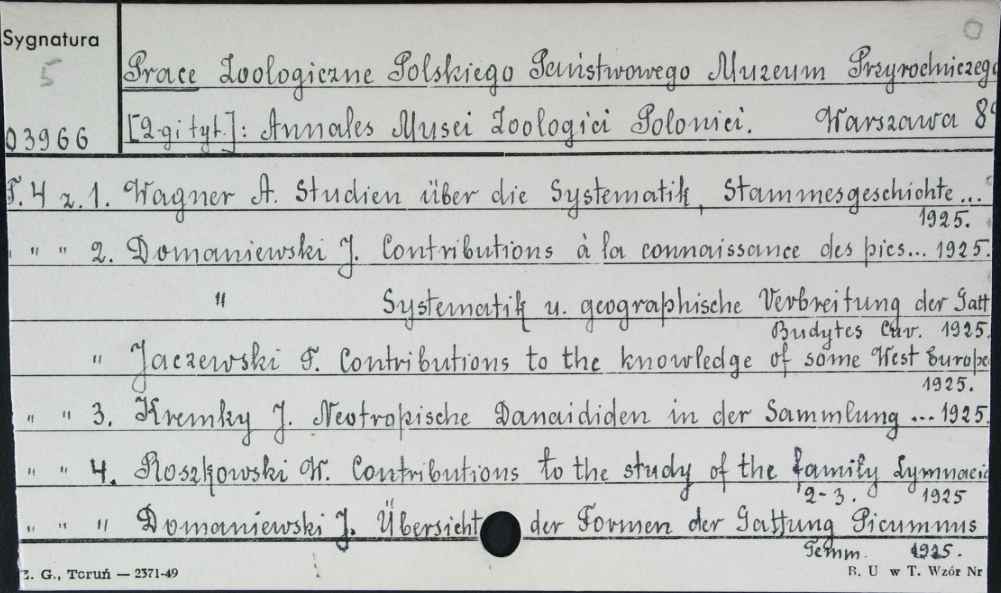 Sygnatura
5
03966
Prace Zoologiczne Polskiego Państwowego Muzeum Przyrodniczego
[2-gi tyt.]: Annales Musei Zoologici Polonici. Warszawa 8°
T. 4 z. 1. Wagner A. Studien über die Systematik, Stammesgeschichte ...
1925.
" " 2. Domaniewski J. Contributions à la connaissance des pics... 1925.
" Systematik u. geographische Verbreitung der Gatt
Budytes Cuv. 1925.
" Jaczewski T. Contributions to the knowledge of some West Europe
1925.
" " 3. Kremky J. Neotropische Danaididen in der Sammlung ... 1925.
" " 4. Roszkowski W. Contributions to the study of the family Lymnaeid
2-3. 1925
" " " Domaniewski J. Übersicht der Formen der Gattung Picumnus
Temm. 1925.
Z. G., Toruń — 2371-49
B. U w T. Wzór Nr